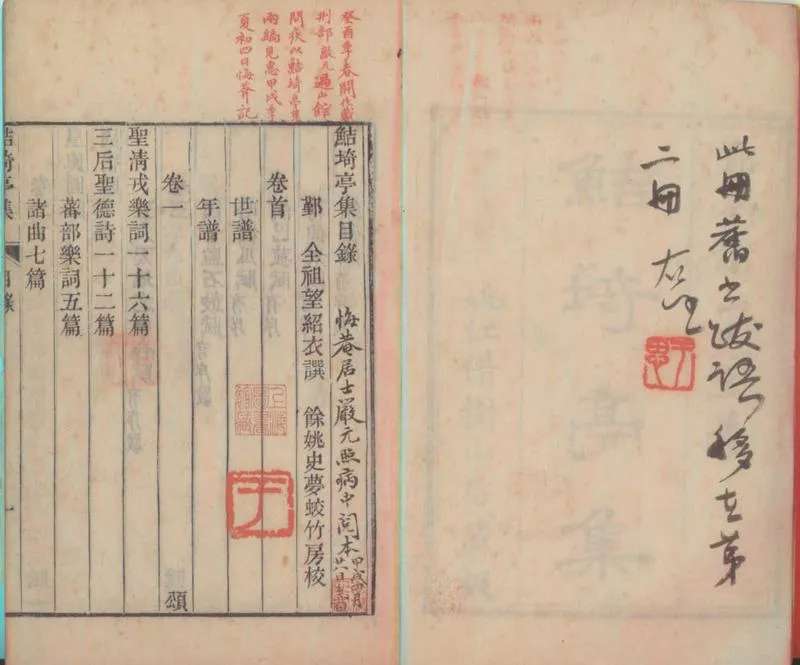 此冊舊書跋語移在第
二冊
癸酉季春開化戴
刑部敦元過山館
問疾以鮚埼亭集
兩編見惠甲戌季
夏初四日悔菴記
鮚埼亭集目錄
鄞 全祖望紹衣譔 餘姚史夢蛟竹房校
悔菴居士嚴元照病中閱本甲戌四月
廿八日
卷首
世譜
年譜
卷一 頌
聖清戎樂詞一十六篇
三后聖德詩一十二篇
蕃部樂詞五篇
諸曲七篇
鮚埼亭集 目錄 一